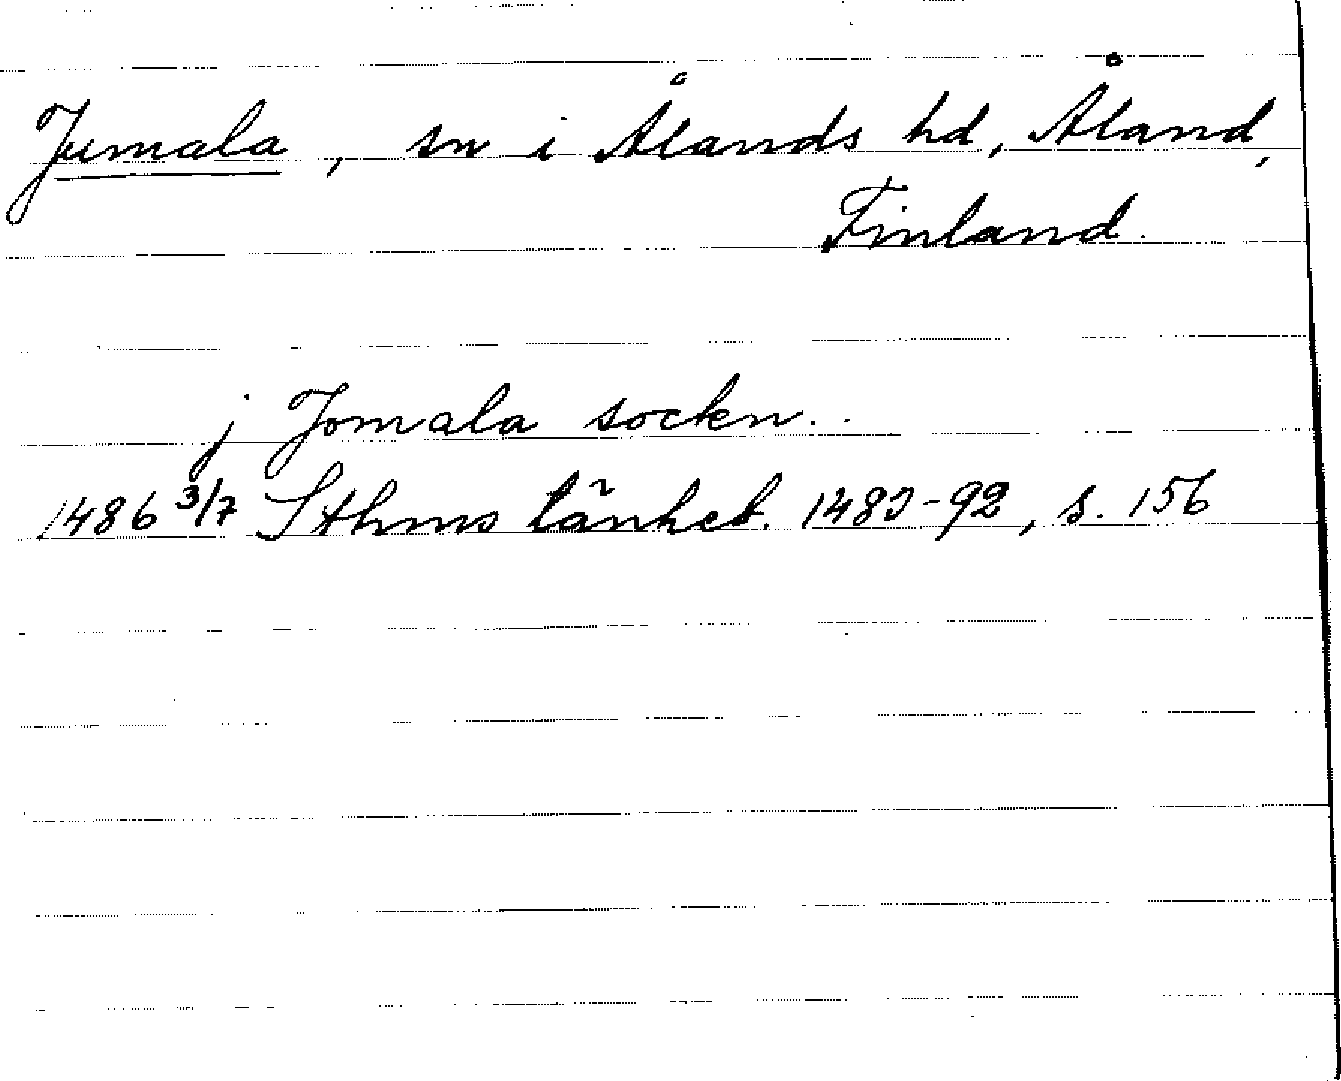 Jumala, sn i Ålands hd, Åland,
Finland.
j Jomala sockn..
1486 3/7 Sthms tänkeb. 1483-92, s. 156